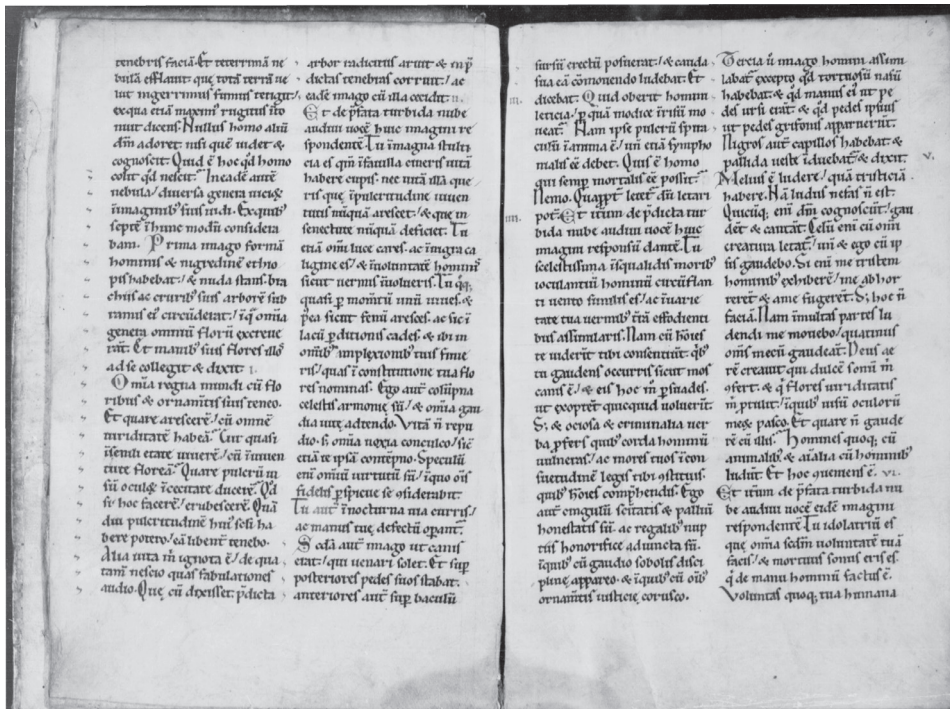 tenebris faciā. Et teterrimā ne
bulā efflauit. que totā terrā ue
lut nigerrimus fumus tetigit/
ex qua etiā maximꝰ rugitus īto
nuit dicens. Nullus homo aliū
dm̄ adoret. nisi quē uidet &
cognoscit. Quid ē hoc qd homo
colit qd nescit. In eadē autē
nebula/ diuersa genera uicioꝝ
ī imaginibꝰ suis uidi. Ex quibꝰ
septē ī hunc modū considera
bam. Prima imago formā
hominis & nigredinē ethio
pis habebat/ & nuda stans. bra
chiis ac cruribꝰ suis arborē sub
ramis ei circūdederat/ ī q̄ omīa
genera omniū florū excreue
rāt. Et manibꝰ suis flores illoꝰ
ad se collegit & dixit. I.
Omīa regna mundi cū flo
ribus & ornamtis suis teneo.
Et quare arescerē/ cū omnē
uiriditatē habeā. Cur quasi
ī senili etate uiuerē/ cū ī iuuen
tute floreā. Quare pulcrū ui
sū oculoꝝ ī cecitatē ducerē. Qd
si hoc facerē/ erubescerē. Quā
diu pulcritudinē huiꝰ seculi ha
bere potero/ eā libent tenebo.
Alia uita m̄ ignota ē/ de qua
tam nescio quas fabulationes
audio. Que cū dixisset. p̄dicta
arbor radicitus aruit & in p̄
dictas tenebras corruit/ ac
eadē imago cū illa cecidit. II.
Et de p̄fata turbida nube
audiui uocē huic imagini re
spondentē. Tu ī magna stulti
cia es qm̄ ī fauilla cineris uitā
habere cupis. nec uitā illā que
ris que ī pulcritudine iuuen
tutis nūquā arescet/ & que in
senectute nūquā deficiet. Tu
etiā omī luce cares. ac ī nigra ca
ligine es/ & ī uoluntate hominū
sicut uermis īuolueris. Tu q̄ꝗ
quasi p̄ momtū unū uiues/ &
p̄ea sicut fenū aresces. ac sic ī
lacū p̄ditionis cades. & ibi in
omībꝰ amplexionibꝰ tuis finie
ris/ quas ī constitutione tua flo
res nominas. Ego autē colūpna
celestis armonie sū/ & omīa gau
dia uite adtendo. Vitā n̄ repu
dio. s; omīa noxia conculco/ sic
etiā te ipsā contēpno. Speculū
enī omīum uirtutū sū/ ī quo ois
fidelis p̄spicue se ɔsiderabit.
Tu autē ī nocturna uia curris/
ac manus tue defectū opant.
Scda autē imago ut canis
erat/ qui uenari solet. Et sup
posteriores pedes suos stabat.
anteriores autē sup baculū
sursū erectū posuerat/ & cauda
sua eā cōmouendo ludebat. Et
dicebat. Quid oberit homini
leticia/ p̄ quā modice ī risū mo
ueat. Nam ipse pulcrū spira
culū ī anima ē/ uñ etiā sympho
nialis eē debet. Quis ē homo
qui semp mortalis eē possit.
Nemo. Quapp̄t letet dū letari
pot. Et itum de p̄dicta tur
bida nube audiui uocē huic
imagini responsū dantē. Tu
scelestissima ī squalidis moribꝰ
ioculantiū hominū circūflan
ti uento similis es/ ac ī uarie
tate tua uermibꝰ trā effodienti
bus assimilaris. Nam cū hoies
te uiderīt tibi consentiūt. qbꝰ
tu gaudens occurris sicut mos
canis ē/ & eis hoc m̄ p̄suades.
ut exoptēt quicquid uoluerīt.
S; & ociosa & criminalia uer
ba p̄fers quibꝰ corda hominū
uulneras/ ac mores tuos ī con
suetudinē legis tibi ɔstituis.
quibꝰ hoies comp̄hendis. Ego
autē cingulū scītatis & palliū
honestatis sū. ac regalibꝰ nup
tiis honorifice adiuncta sū.
ī quibꝰ cū gaudio sobolis disci
pline appareo. & ī quibꝰ cū oibꝰ
ornamtis iusticie corusco.
III.
IIII.
Tercia ū imago homini assimi
labat excepto qd tortuosū nasū
habebat. & qd manus ei ut pe
des ursi erāt/ & qd pedes ipsius
ut pedes grifonis apparuerūt.
Nigros autē capillos habebat/ &
pallida ueste īduebat/ & dixit.
V.
Melius ē ludere/ quā tristiciā
habere. Nā ludus nefas n̄ est.
Quicūq; enī dm̄ cognoscūt/ gau
dēt & cantāt. Celū enī cū omī
creatura letat/ uñ & ego cū ip
sis gaudebo. Si enī me tristem
hominibꝰ exhiberē/ me abhor
rerēt & a me fugerēt. S; hoc n̄
faciā. Nam ī multas partes lu
dendi me mouebo/ quatinus
oms mecū gaudeāt. Deus ae
rē creauit qui dulcē sonū m̄
ɔfert. & q̄ flores uiriditatis
m̄ ptulit/ ī quibus uisū oculorū
meoꝝ pasco. Et quare n̄ gaude
rē cū illis. Homines quoq; cū
animalibꝰ & aīalia cū hominibꝰ
ludūt. Et hoc ɔueniens ē. VI.
Et itum de p̄fata turbida nu
be audiui uocē eidē imagini
respondentē. Tu idolatria es
que omīa scdm uoluntatē tuā
facis/ & mortuus sonus eris es
q̄ de manu hominū factus ē.
Voluntas quoq; tua humana